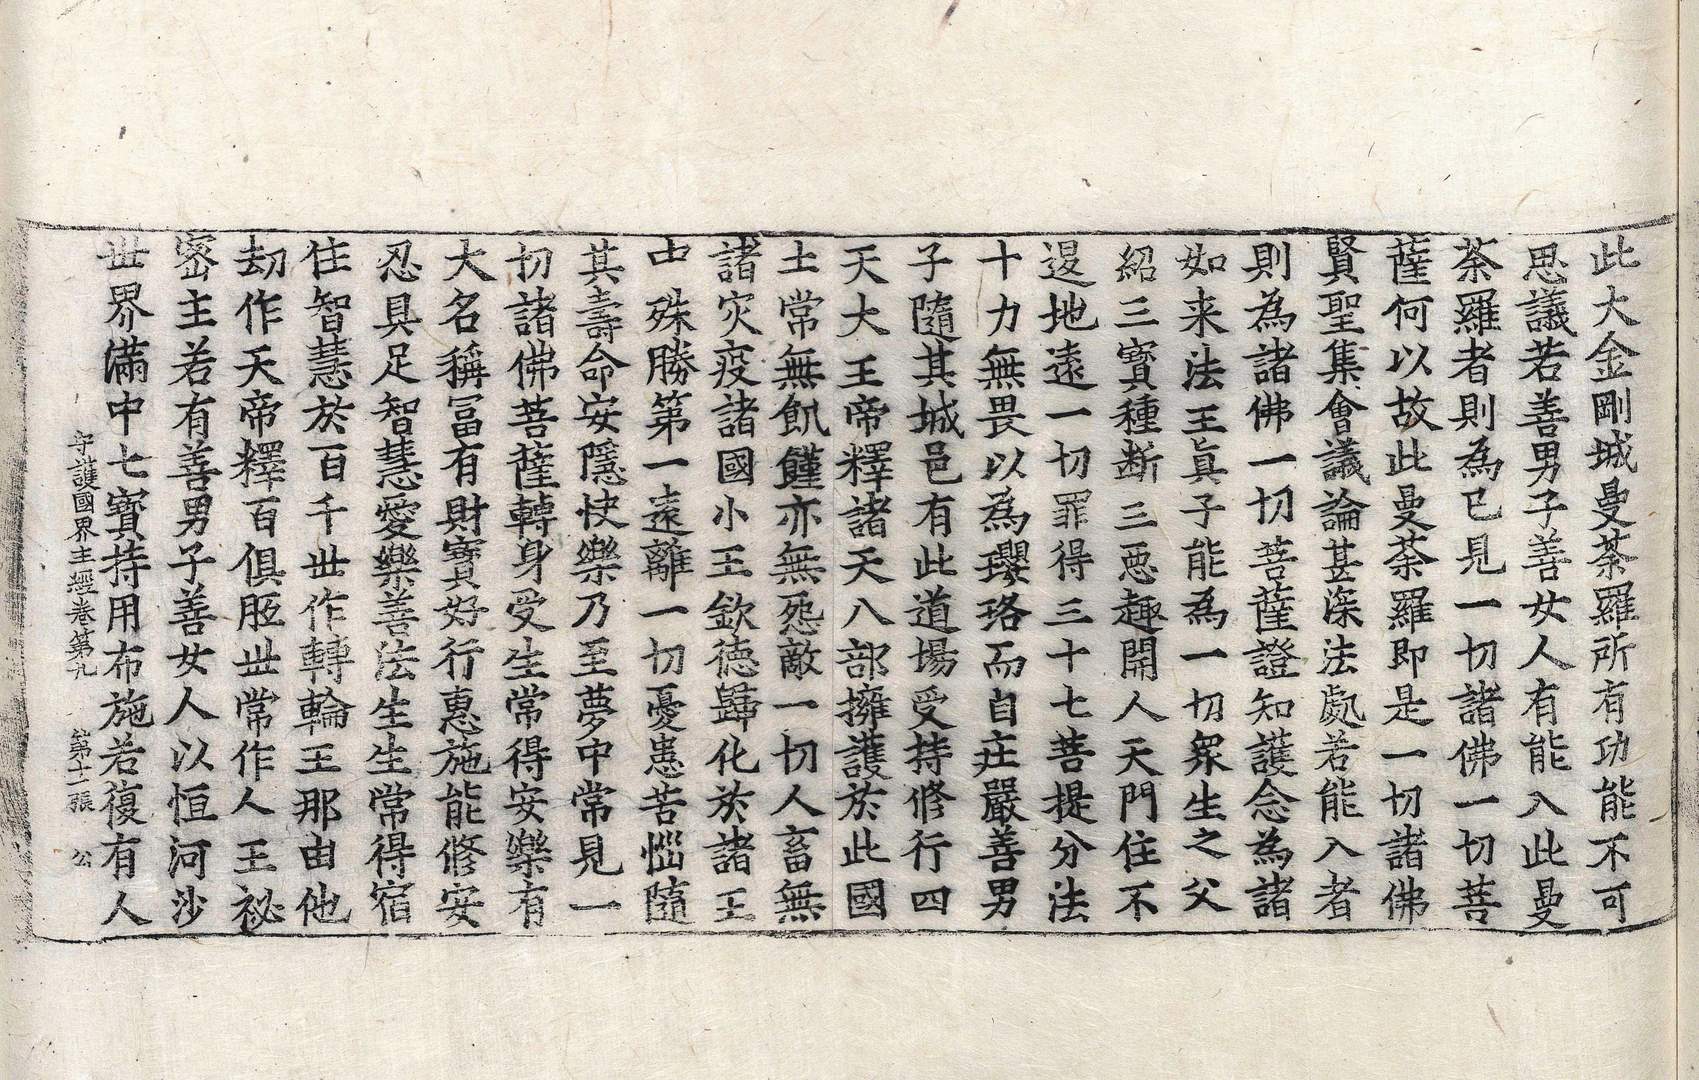 此大金剛城曼荼羅所有功能不可
思議若善男子善女人有能入此曼
荼羅者則為已見一切諸佛一切菩
薩何以故此曼荼羅即是一切諸佛
賢聖集會議論甚深法處若能入者
則為諸佛一切菩薩證知護念為諸
如来法王真子能為一切衆生之父
紹三寶種断三惡趣開人天門住不
退地遠一切罪得三十七菩提分法
十力無畏以為瓔珞而自庄嚴善男
子隨其城邑有此道場受持修行四
天大王帝釋諸天八部擁護於此國
土常無飢饉亦無怨敵一切人畜無
諸灾疫諸國小王欽徳歸化於諸王
中殊勝第一遠離一切憂患苦惱隨
其壽命安隱快樂乃至夢中常見一
切諸佛菩薩轉身受生常得安樂有
大名稱冨有財寶好行惠施能修安
忍具足智慧愛樂善法生生常得宿
住智慧於百千世作轉輪王那由他
劫作天帝釋百俱胝世常作人王祕
密主若有善男子善女人以恒河沙
世界滿中七寶持用布施若復有人
守護國界主經卷第九 第十二張 公